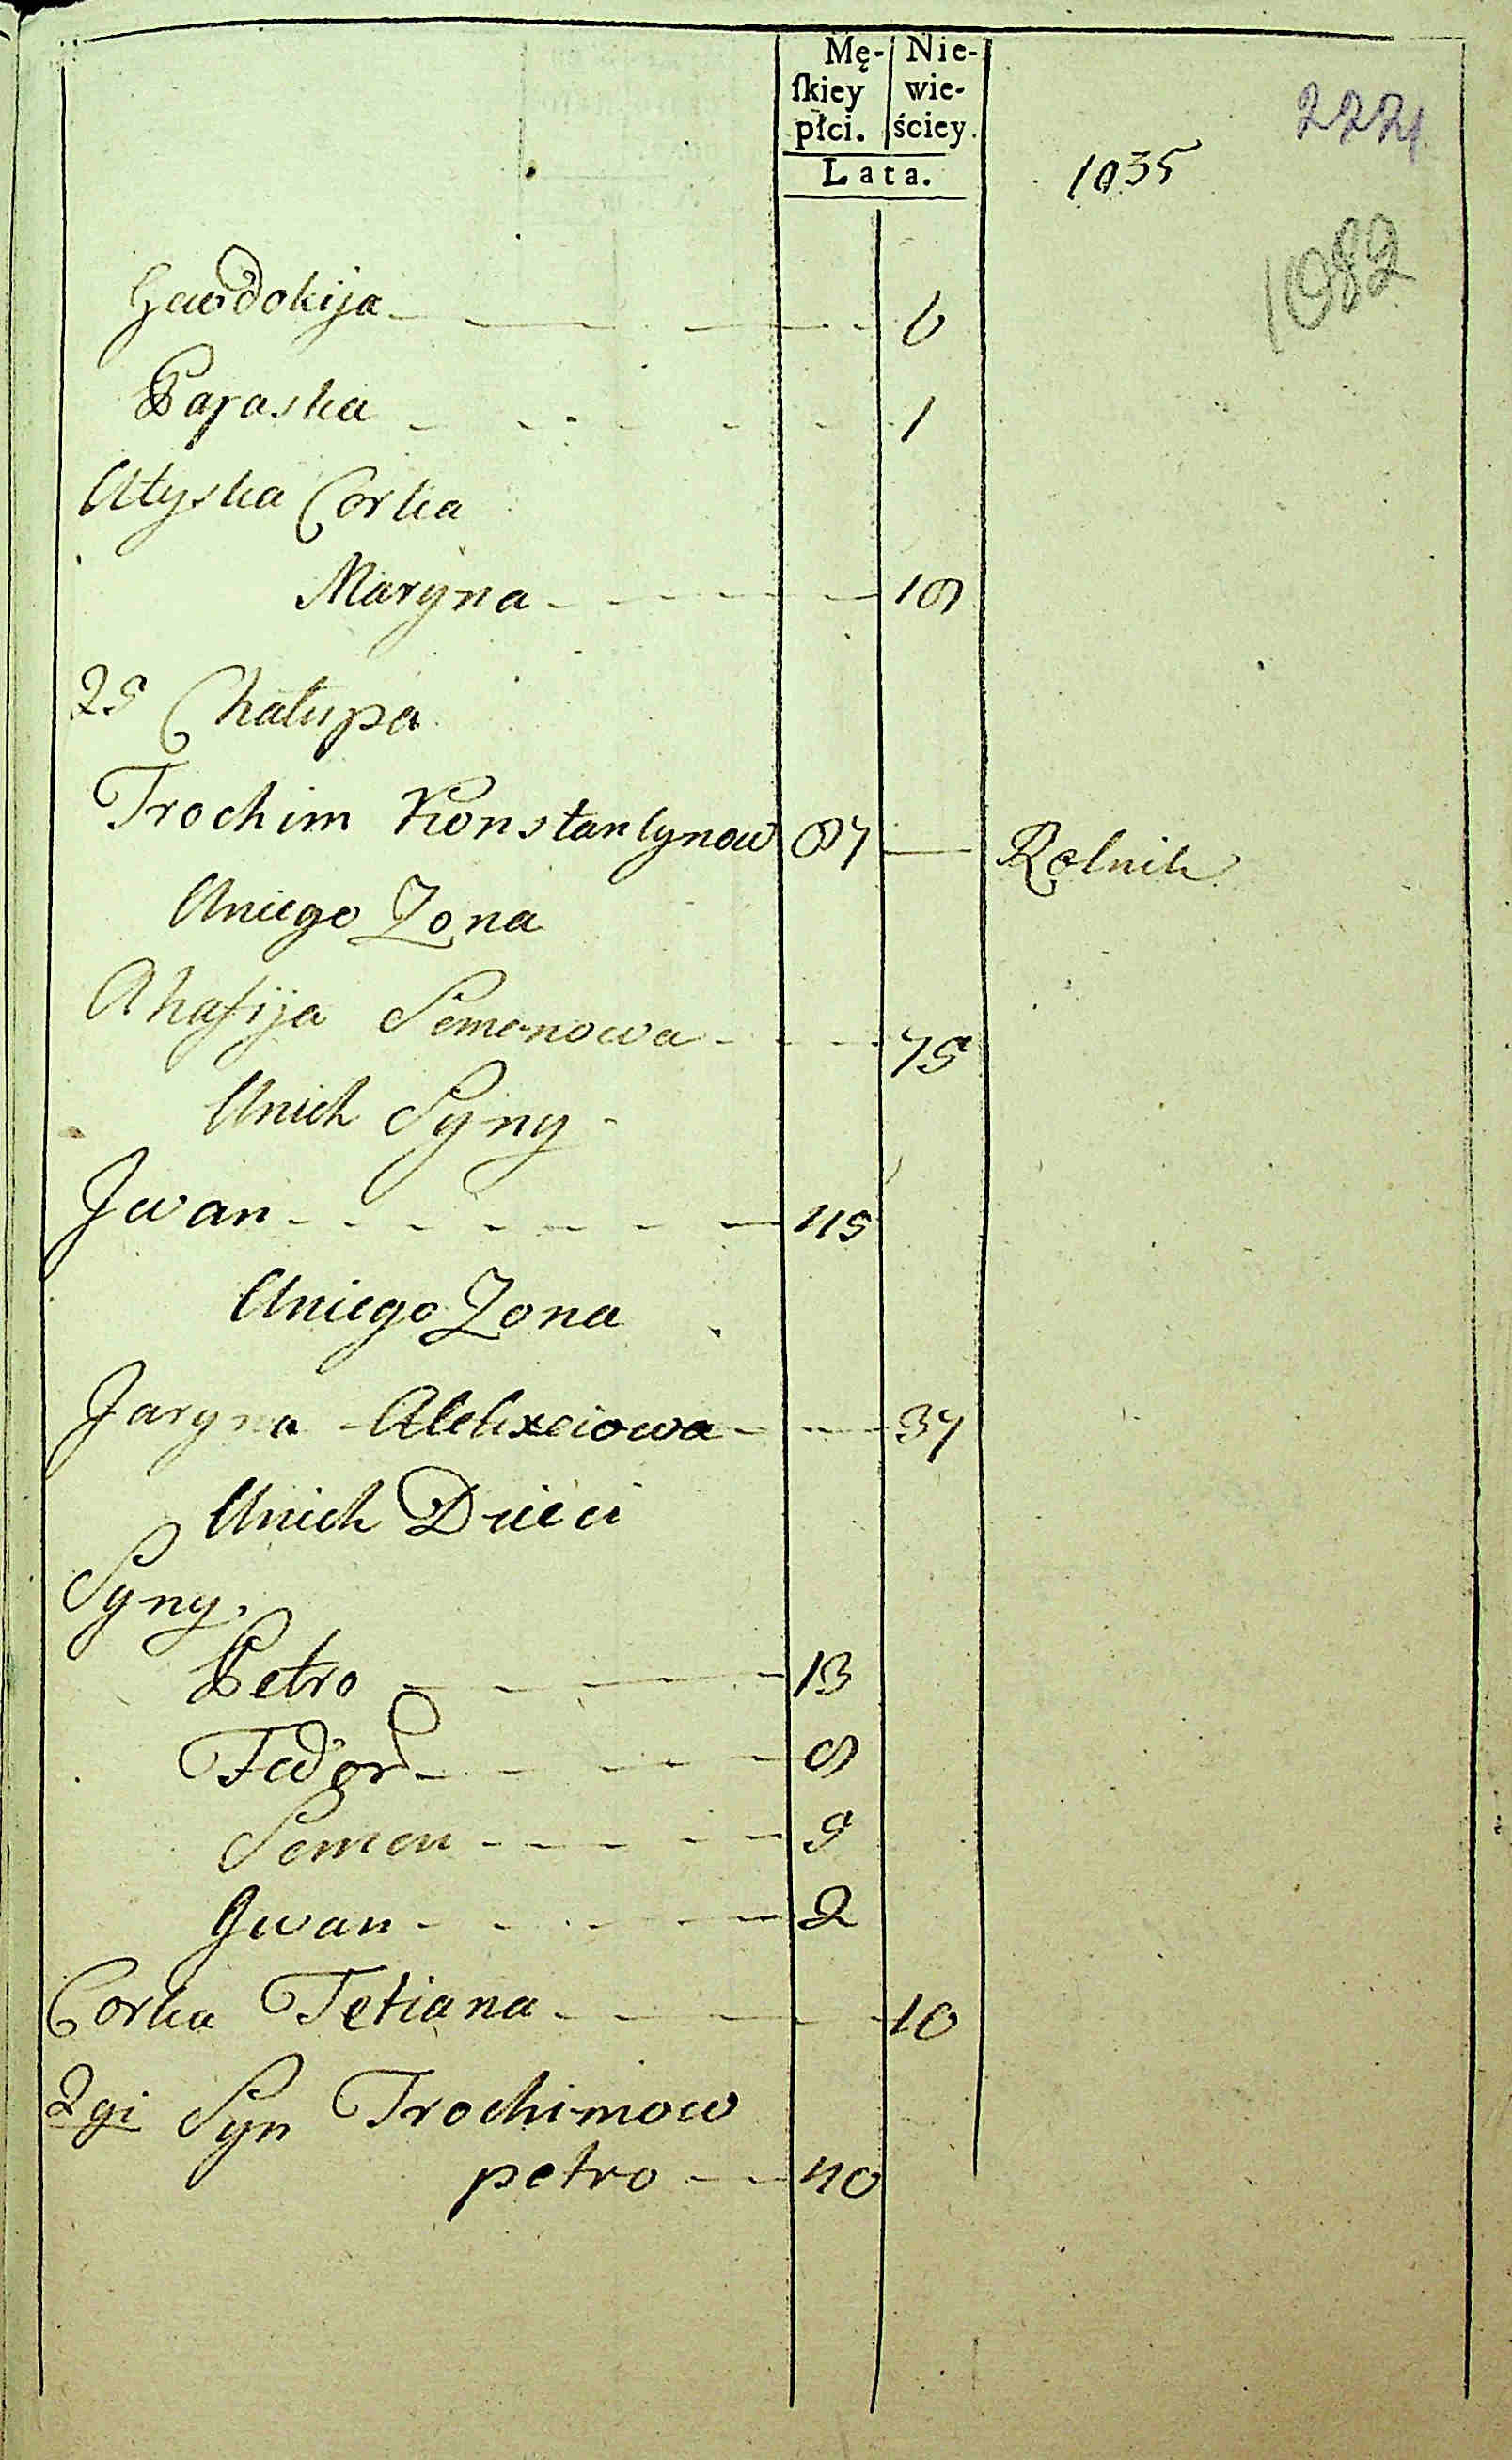 Mę- Nie-
ſkiey wie-
płci. ściey.
Lata.
2221
1035
1082
Hawdokija 6
Paraska 1
Utyska Corka
Maryna 18
25 Chałupa
Trochim Konstantynow 87 Rolnik
Uniego Zona
Ahafija Semenowa 75
Unich Syny
Jwan 45
Uniego Zona
Jaryna Alekxeiowa 37
Unich Dzieci
Syny.
Petro 13
Fedor 8
Semen 5
Jwan 2
Corka Tetiana 10
2gi Syn Trochimow
petro 40